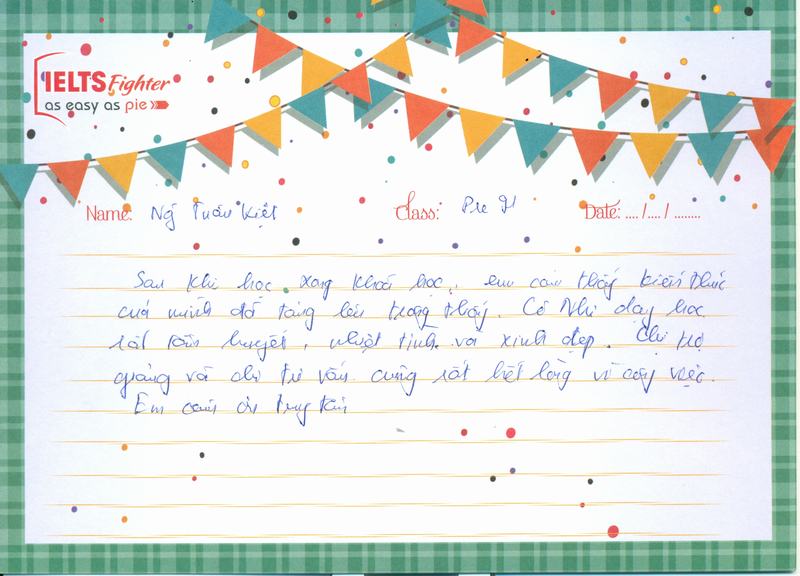 IELTS Fighter
as easy as pie
Name: Ng Tuấn Kiệt Class: Pre Date: .... /.... / ........
Sau khi học xong khoá học, em cảm thấy kiến thức
của mình đã tăng lên trông thấy. Cô Nhi dạy học
rất tâm huyết, nhiệt tình và xinh đẹp. Chị trợ
giảng và chị tư vấn cũng rất hết lòng vì công việc.
Em cảm ơn trung tâm